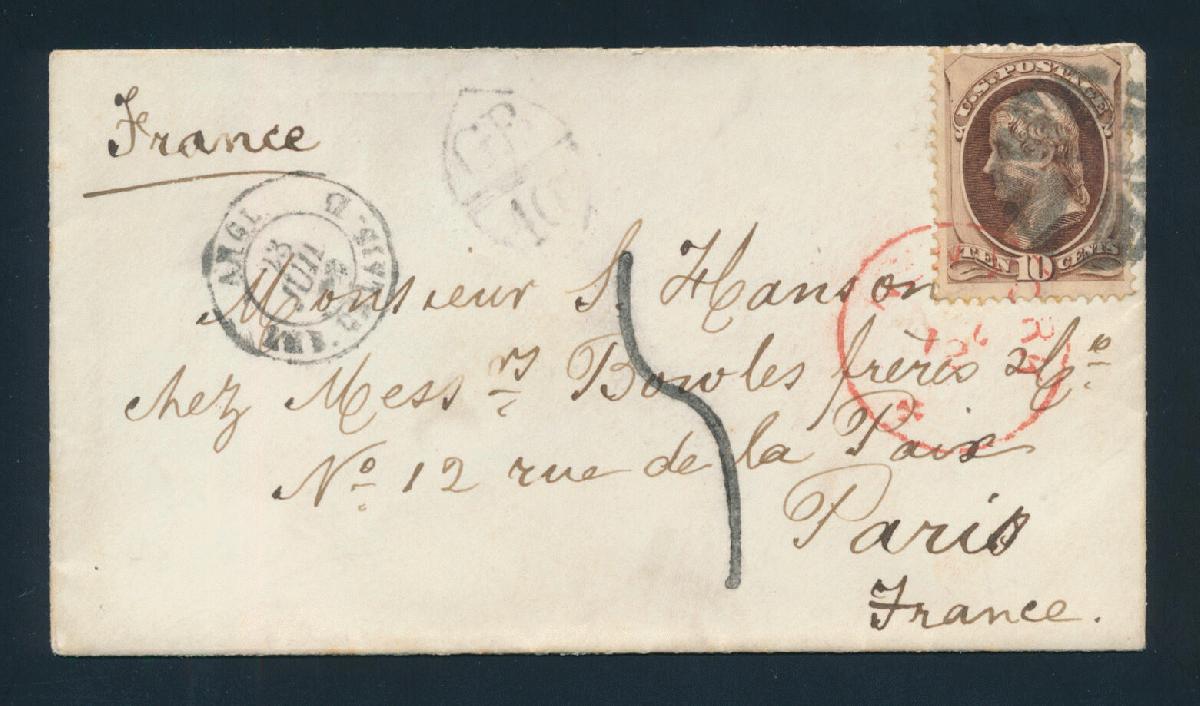 France
GB
10
U.S. POSTAGE
TEN 10 CENTS
ANGL.
23
JUIL
CALAIS
Monsieur S. Hanson
chez Mess.rs Bowles frères & Cie
No. 12 rue de la Paix
Paris
France.
5